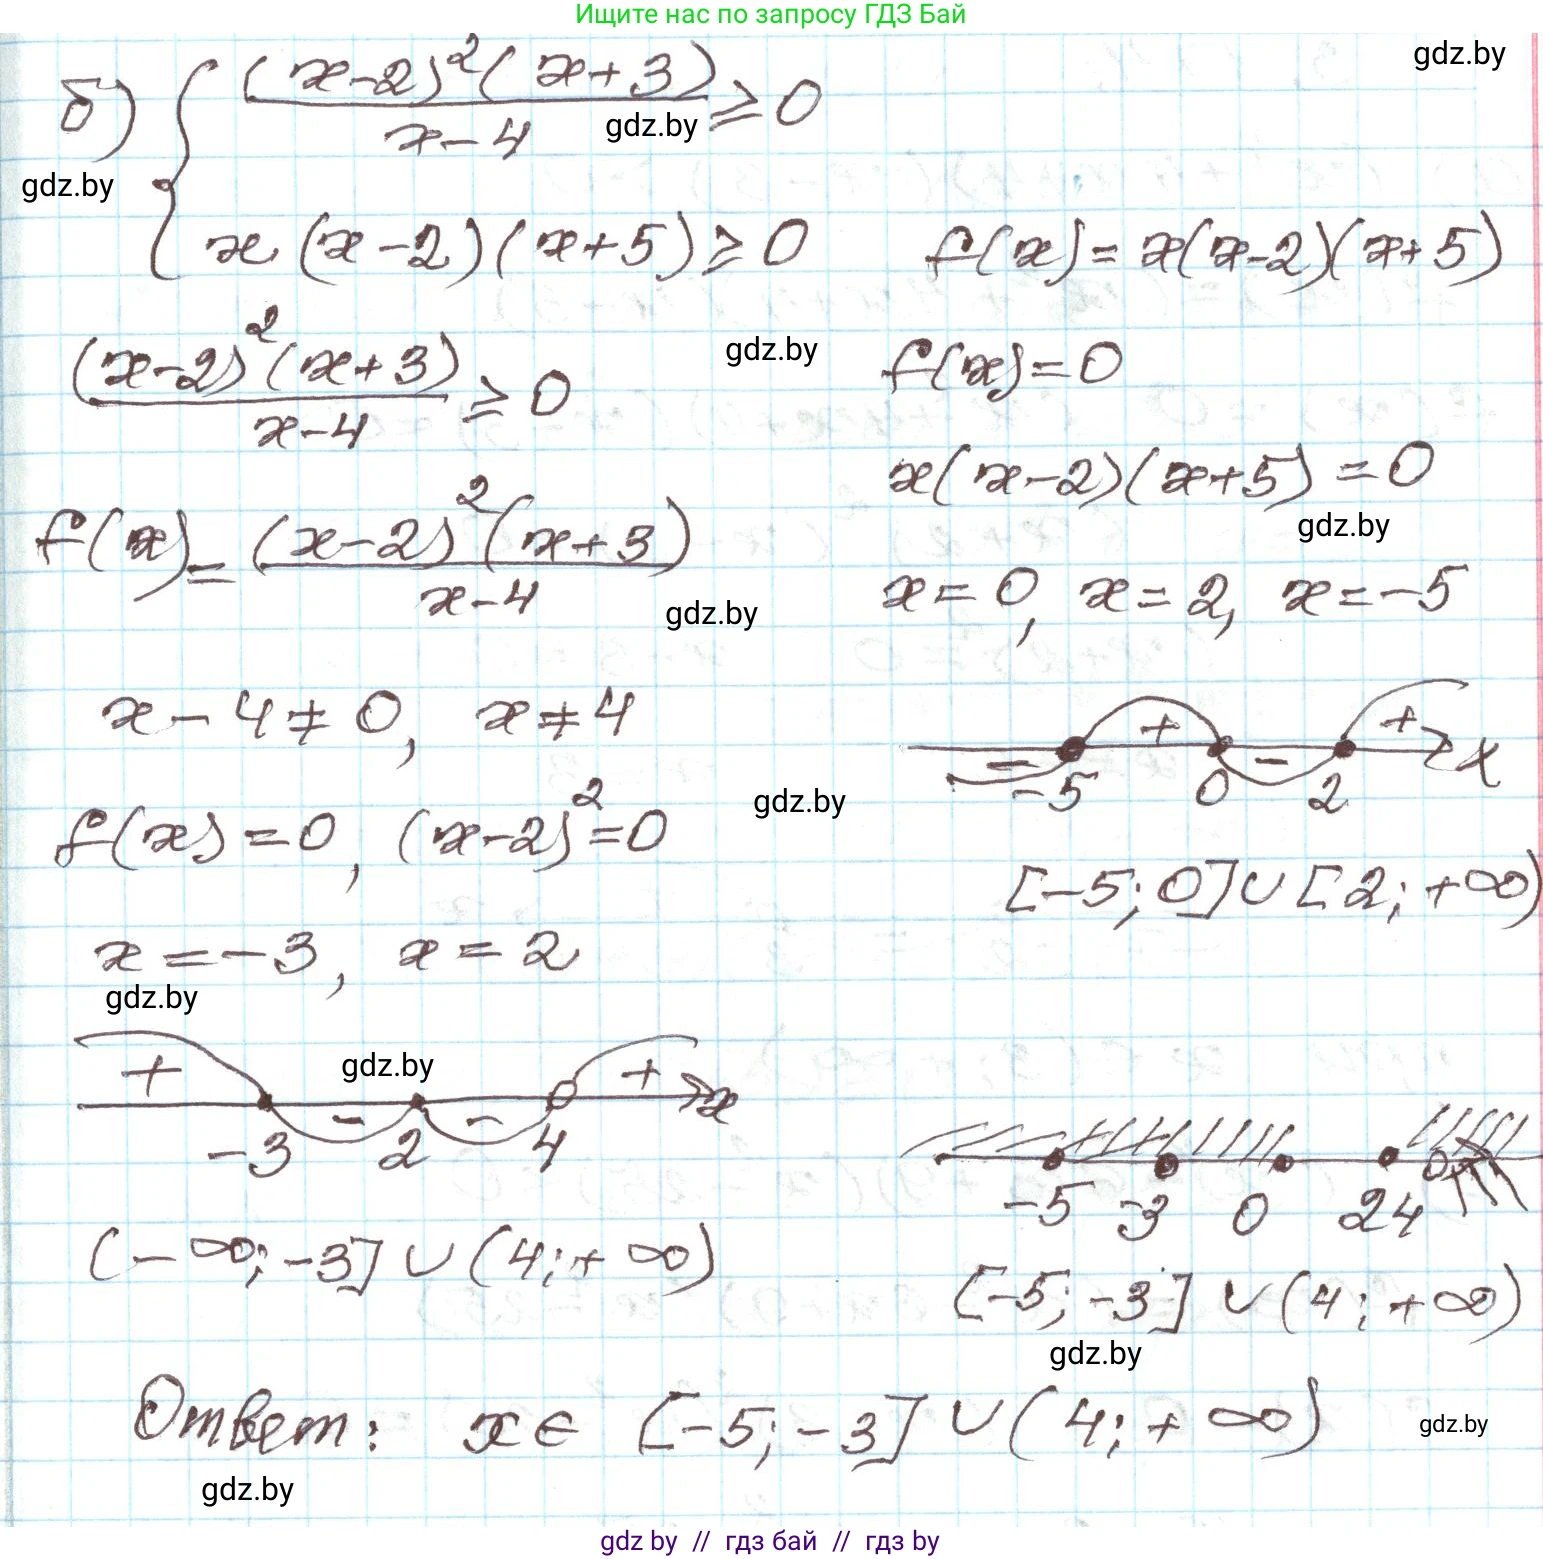 Ищите нас по запросу ГДЗ Бай
gdz.by
б) { (x-2)²(x+3) / x-4 ≥ 0
gdz.by
gdz.by
x(x-2)(x+5) ≥ 0
f(x) = x(x-2)(x+5)
(x-2)²(x+3) / x-4 ≥ 0
gdz.by
f(x) = 0
x(x-2)(x+5) = 0
gdz.by
f(x) = (x-2)²(x+3) / x-4
gdz.by
x = 0, x = 2, x = -5
x - 4 ≠ 0, x ≠ 4
+ + x
- -5 0 - 2
gdz.by
f(x) = 0, (x-2)² = 0
[-5; 0] ∪ [2; +∞)
x = -3, x = 2
gdz.by
gdz.by
+ + x
-3 - 2 - 4
-5 -3 0 2 4
(-∞; -3] ∪ (4; +∞)
[-5; -3] ∪ (4; +∞)
gdz.by
Ответ: x ∈ [-5; -3] ∪ (4; +∞)
gdz.by
gdz.by
gdz by // гдз бай // гдз by